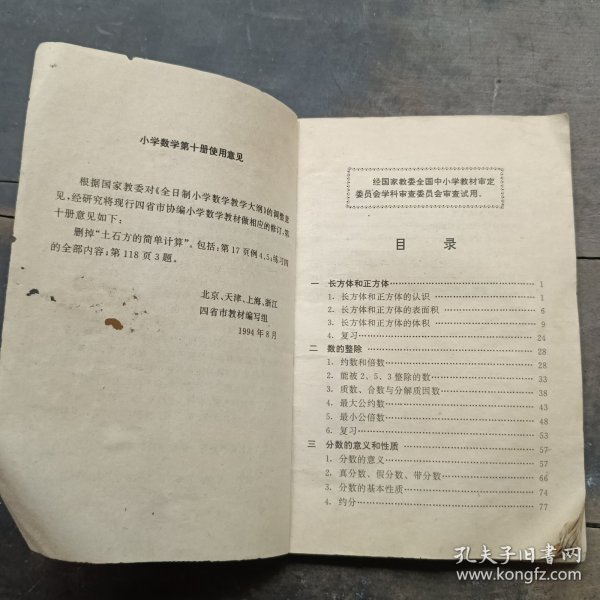 小学数学第十册使用意见
根据国家教委对《全日制小学数学教学大纲》的调整意
见,经研究将现行四省市协编小学数学教材做相应的修订,第
十册意见如下:
删掉“土石方的简单计算”。包括:第17页例4、5;练习四
的全部内容;第118页3题。
北京、天津、上海、浙江
四省市教材编写组
1994年8月
经国家教委全国中小学教材审定
委员会学科审查委员会审查试用。
目 录
一 长方体和正方体 1
1. 长方体和正方体的认识 1
2. 长方体和正方体的表面积 6
3. 长方体和正方体的体积 9
4. 复习 24
二 数的整除 28
1. 约数和倍数 28
2. 能被2、5、3整除的数 33
3. 质数、合数与分解质因数 38
4. 最大公约数 43
5. 最小公倍数 48
6. 复习 53
三 分数的意义和性质 57
1. 分数的意义 57
2. 真分数、假分数、带分数 66
3. 分数的基本性质 74
4. 约分 77
孔夫子旧书网
www.kongfz.com